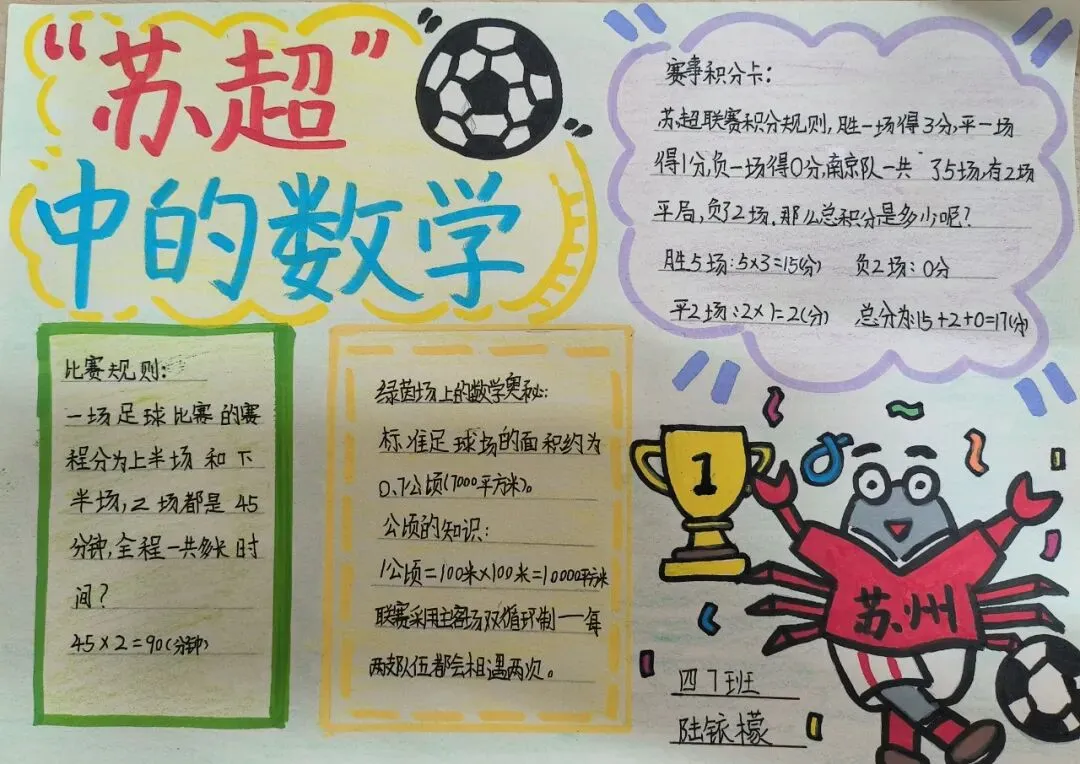 “苏超”
中的数学
赛事积分卡：
苏超联赛积分规则，胜一场得3分，平一场
得1分，负一场得0分，南京队一共 了5场，有2场
平局，负了2场，那么总积分是多少呢？
胜5场：5×3=15(分) 负2场：0分
平2场：2×1=2(分) 总分为：15+2+0=17(分)
比赛规则：
一场足球比赛的赛
程分为上半场和下
半场，2场都是45
分钟，全程一共多长时
间？
45×2=90(分钟)
绿茵场上的数学奥秘：
标准足球场的面积约为
0.7公顷(7000平方米)。
公顷的知识：
1公顷=100米×100米=10000平方米
联赛采用主客场双循环制一每
两支队伍都会相遇两次。
1
苏州
四7班
陆铱檬